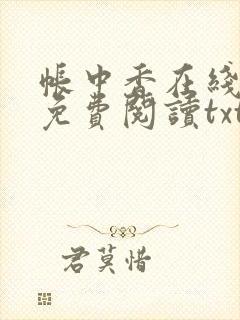 帳中香在綫
免費閱讀txt
君莫惜